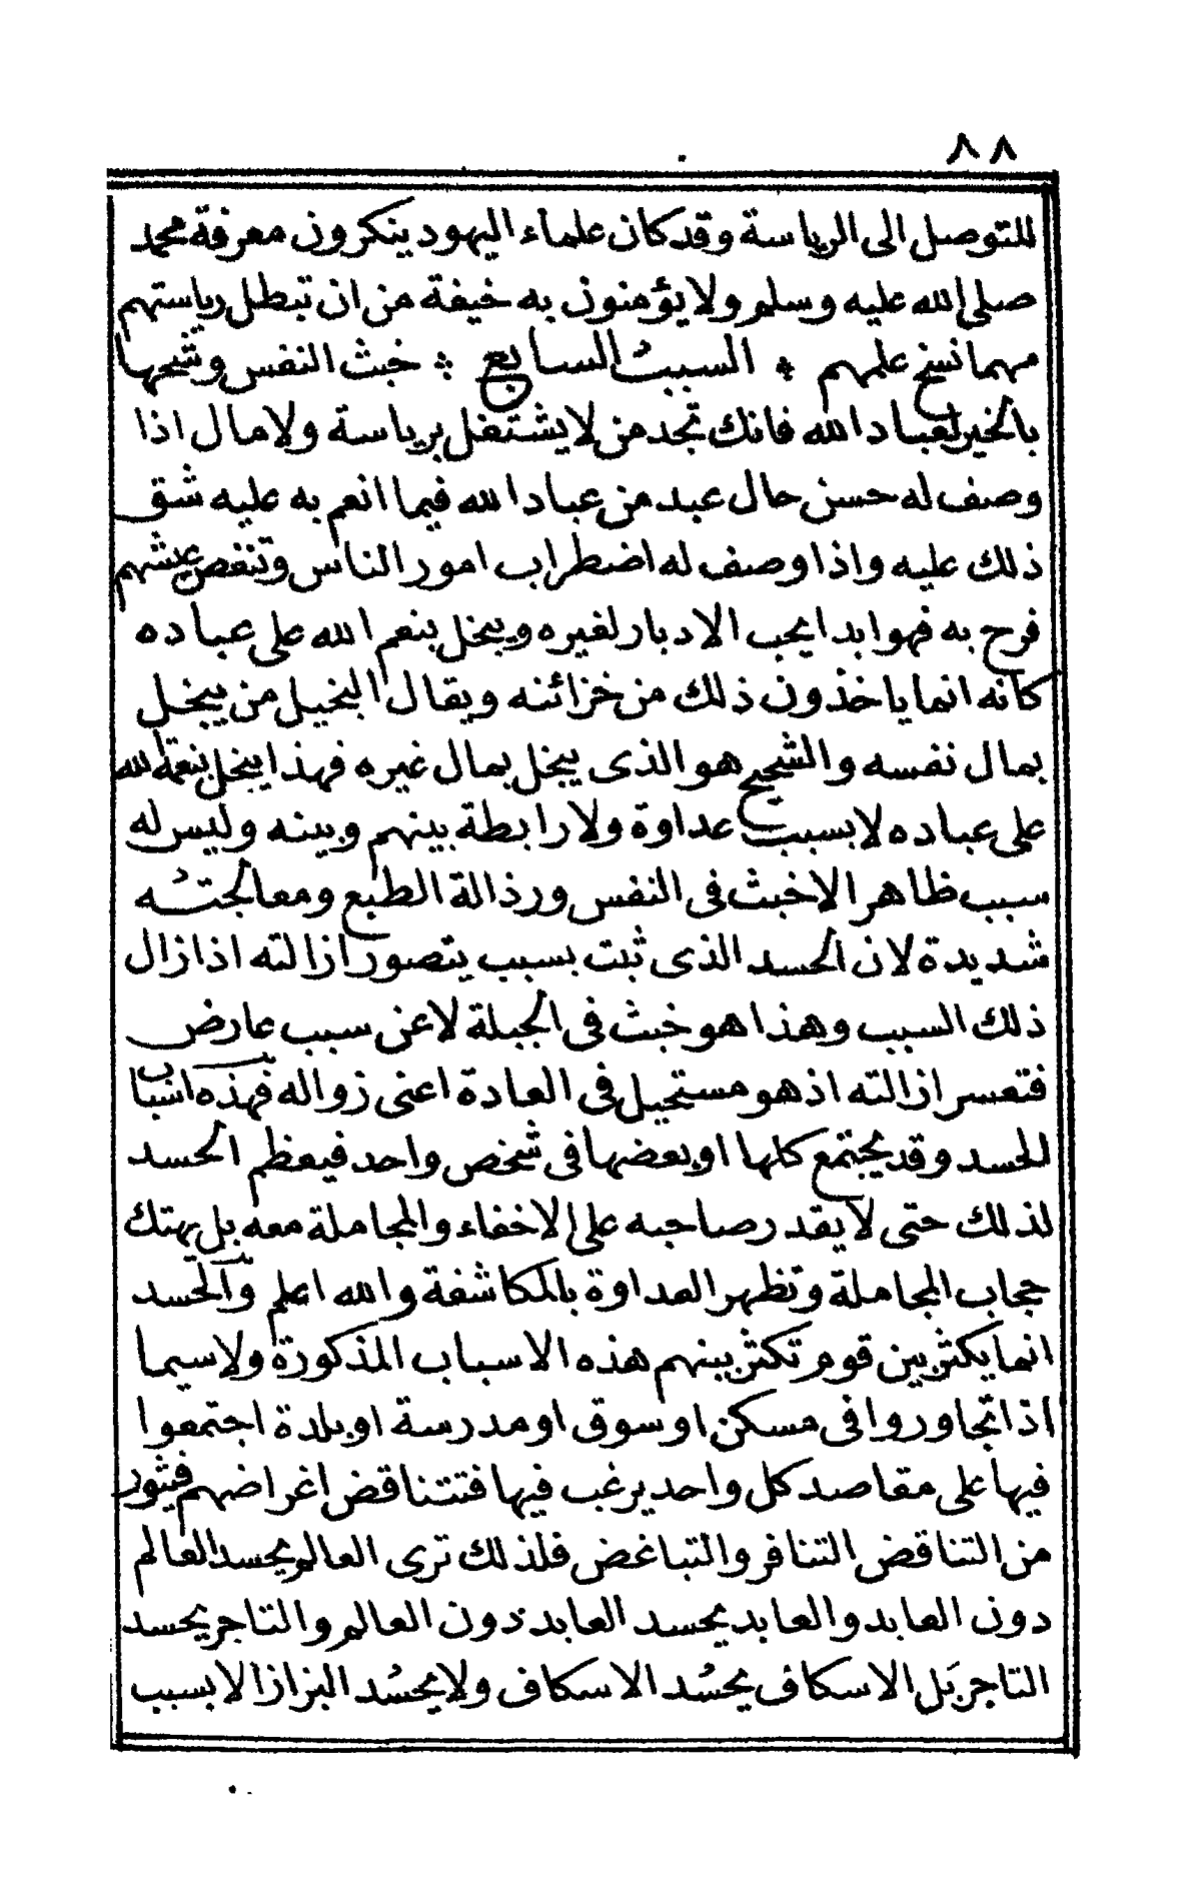 ٨٨
للتوصل الى الرياسة وقد كان علماء اليهود ينكرون معرفة محمد
صلى الله عليه وسلم ولا يؤمنون به خيفة من ان تبطل رياستهم
مهما نسخ علمهم ؞ السبب السابع ؞ خبث النفس وشحها
بالخير لعباد الله فانك تجد من لا يشتغل برياسة ولا مال اذا
وصف له حسن حال عبد من عباد الله فيما انعم به عليه شق
ذلك عليه واذا وصف له اضطراب امور الناس وتنغص عيشهم
فرح به فهو ابدا يحب الادبار لغيره ويبخل بنعم الله على عباده
كانه انما ياخذون ذلك من خزائنه ويقال البخيل من يبخل
بمال نفسه والشحيح هو الذى يبخل بمال غيره فهذا يبخل بنعمة الله
على عباده لا بسبب عداوة ولا رابطة بينهم وبينه وليس له
سبب ظاهر الاخبث فى النفس ورذالة الطبع ومعالجته
شديدة لان الحسد الذى ثبت بسبب يتصور ازالته اذا زال
ذلك السبب وهذا هو خبث فى الجبلة لا عن سبب عارض
فتعسر ازالته اذ هو مستحيل فى العادة اعنى زواله فهذه اسباب
الحسد وقد يجتمع كلها او بعضها فى شخص واحد فيعظم الحسد
لذلك حتى لا يقدر صاحبه على الاخفاء والمجاملة معه بل يهتك
حجاب المجاملة وتظهر العداوة بالمكاشفة والله اعلم والحسد
انما يكثر بين قوم تكثر بينهم هذه الاسباب المذكورة ولا سيما
اذا تجاوروا فى مسكن او سوق او مدرسة او بلدة اجتمعوا
فيها على مقاصد كل واحد يرغب فيها فتتناقض اغراضهم فيثور
من التناقض التنافر والتباغض فلذلك ترى العالم يحسد العالم
دون العابد والعابد يحسد العابد دون العالم والتاجر يحسد
التاجر بَل الاسكاف يحسُد الاسكاف ولا يحسُد البزاز الا بسبب